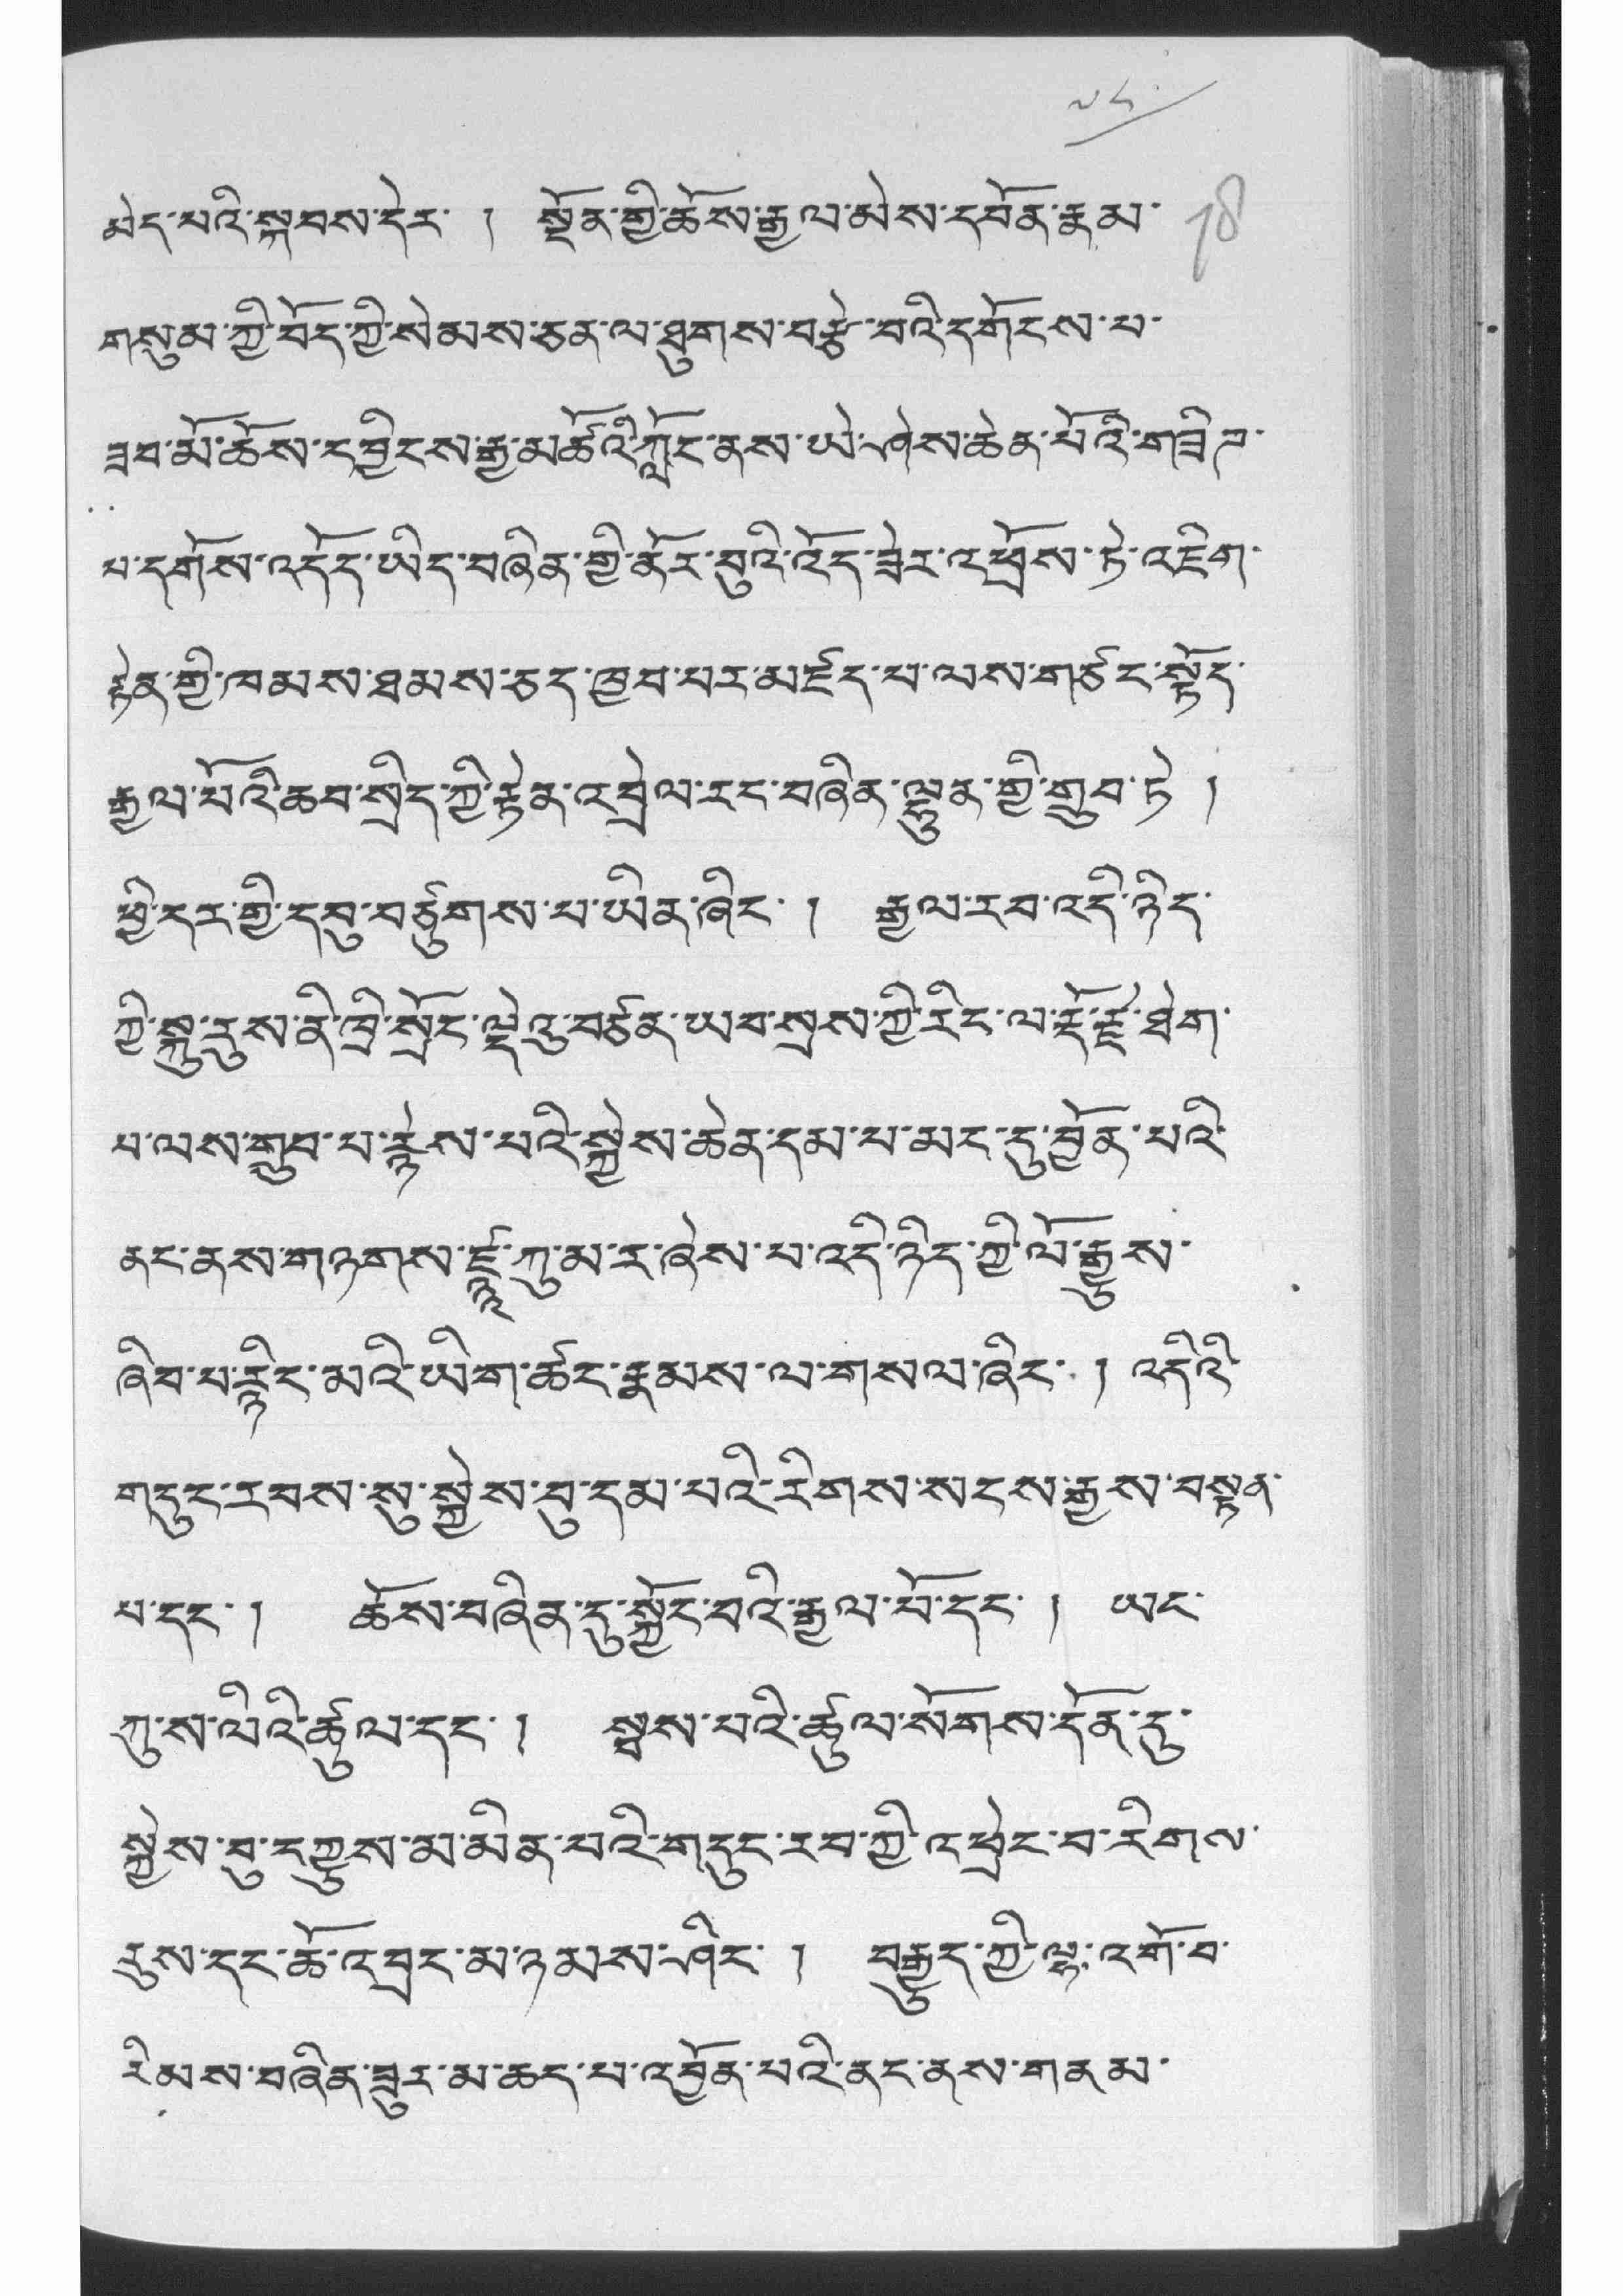 མེད་པའི་སྐབས་དེར་ །   སྔོན་གྱི་ཆོས་རྒྱལ་མེས་དབོན་རྣམ་
གསུམ་ཀྱི་བོད་ཀྱི་སེམས་ཅན་ལ་ཐུགས་བརྩེ་བའི་དགོངས་པ་
ཟབ་མོ་ཆོས་དབྱིངས་རྒྱ་མཚོའི་ཀློང་ནས་ཡེ་ཤེས་ཆེན་པོའི་གཟི་
པ་དགོས་འདོད་ཡིད་བཞིན་གྱི་ནོར་བུའི་འོད་ཟེར་འཕྲོས་ཏེ་འཇིག་
རྟེན་གྱི་ཁམས་ཐམས་ཅད་ཁྱབ་པར་མཛད་པ་ལས་གཙང་སྟོད་
རྒྱལ་པོའི་ཆབ་སྲིད་ཀྱི་རྟེན་འབྲེལ་རང་བཞིན་ལྷུན་གྱི་གྲུབ་ཏེ །
ཕྱི་དར་གྱི་དབུ་བཙུགས་པ་ཡིན་ཞིང་ །   རྒྱལ་རབ་འདི་ཉིད་
ཀྱི་སྐུ་རུས་ནི་ཁྲི་སྲོང་ལྡེའུ་བཙན་ཡབ་སྲས་ཀྱི་རིང་ལ་རྡོ་རྗེ་ཐེག་
པ་ལས་གྲུབ་པ་རྙེས་པའི་སྐྱེས་ཆེན་དམ་པ་མང་དུ་བྱོན་པའི་
ནང་ནས་གཉགས་ཛྙཱ་ཀུ་མ་ར་ཞེས་པ་འདི་ཉིད་ཀྱི་ལོ་རྒྱུས་
ཞིབ་པ་རྙིང་མའི་ཡིག་ཚང་རྣམས་ལ་གསལ་ཞིང་ །  འདིའི་
གདུང་རབས་སུ་སྐྱེས་བུ་དམ་པའི་རིགས་སངས་རྒྱས་བསྟན་
པ་དང་ །   ཆོས་བཞིན་དུ་སྐྱོང་བའི་རྒྱལ་པོ་དང་ །   ཡང་
ཀུ་ས་ལིའི་ཚུལ་དང་ །   སྦས་པའི་ཚུལ་སོགས་དོན་དུ་
སྐྱེས་བུ་དཀྱུས་མ་མིན་པའི་གདུང་རབ་ཀྱི་འཕྲེང་བ་རིགས་
རུས་དང་ཆོ་འབྲང་མ་ཉམས་ཤིང་ །   བརྒྱུད་ཀྱི་ལྷ་འགོ་བ་
རིམས་བཞིན་ཟུར་མ་ཆད་པ་འབྱོན་པའི་ནང་ནས་གནམ་